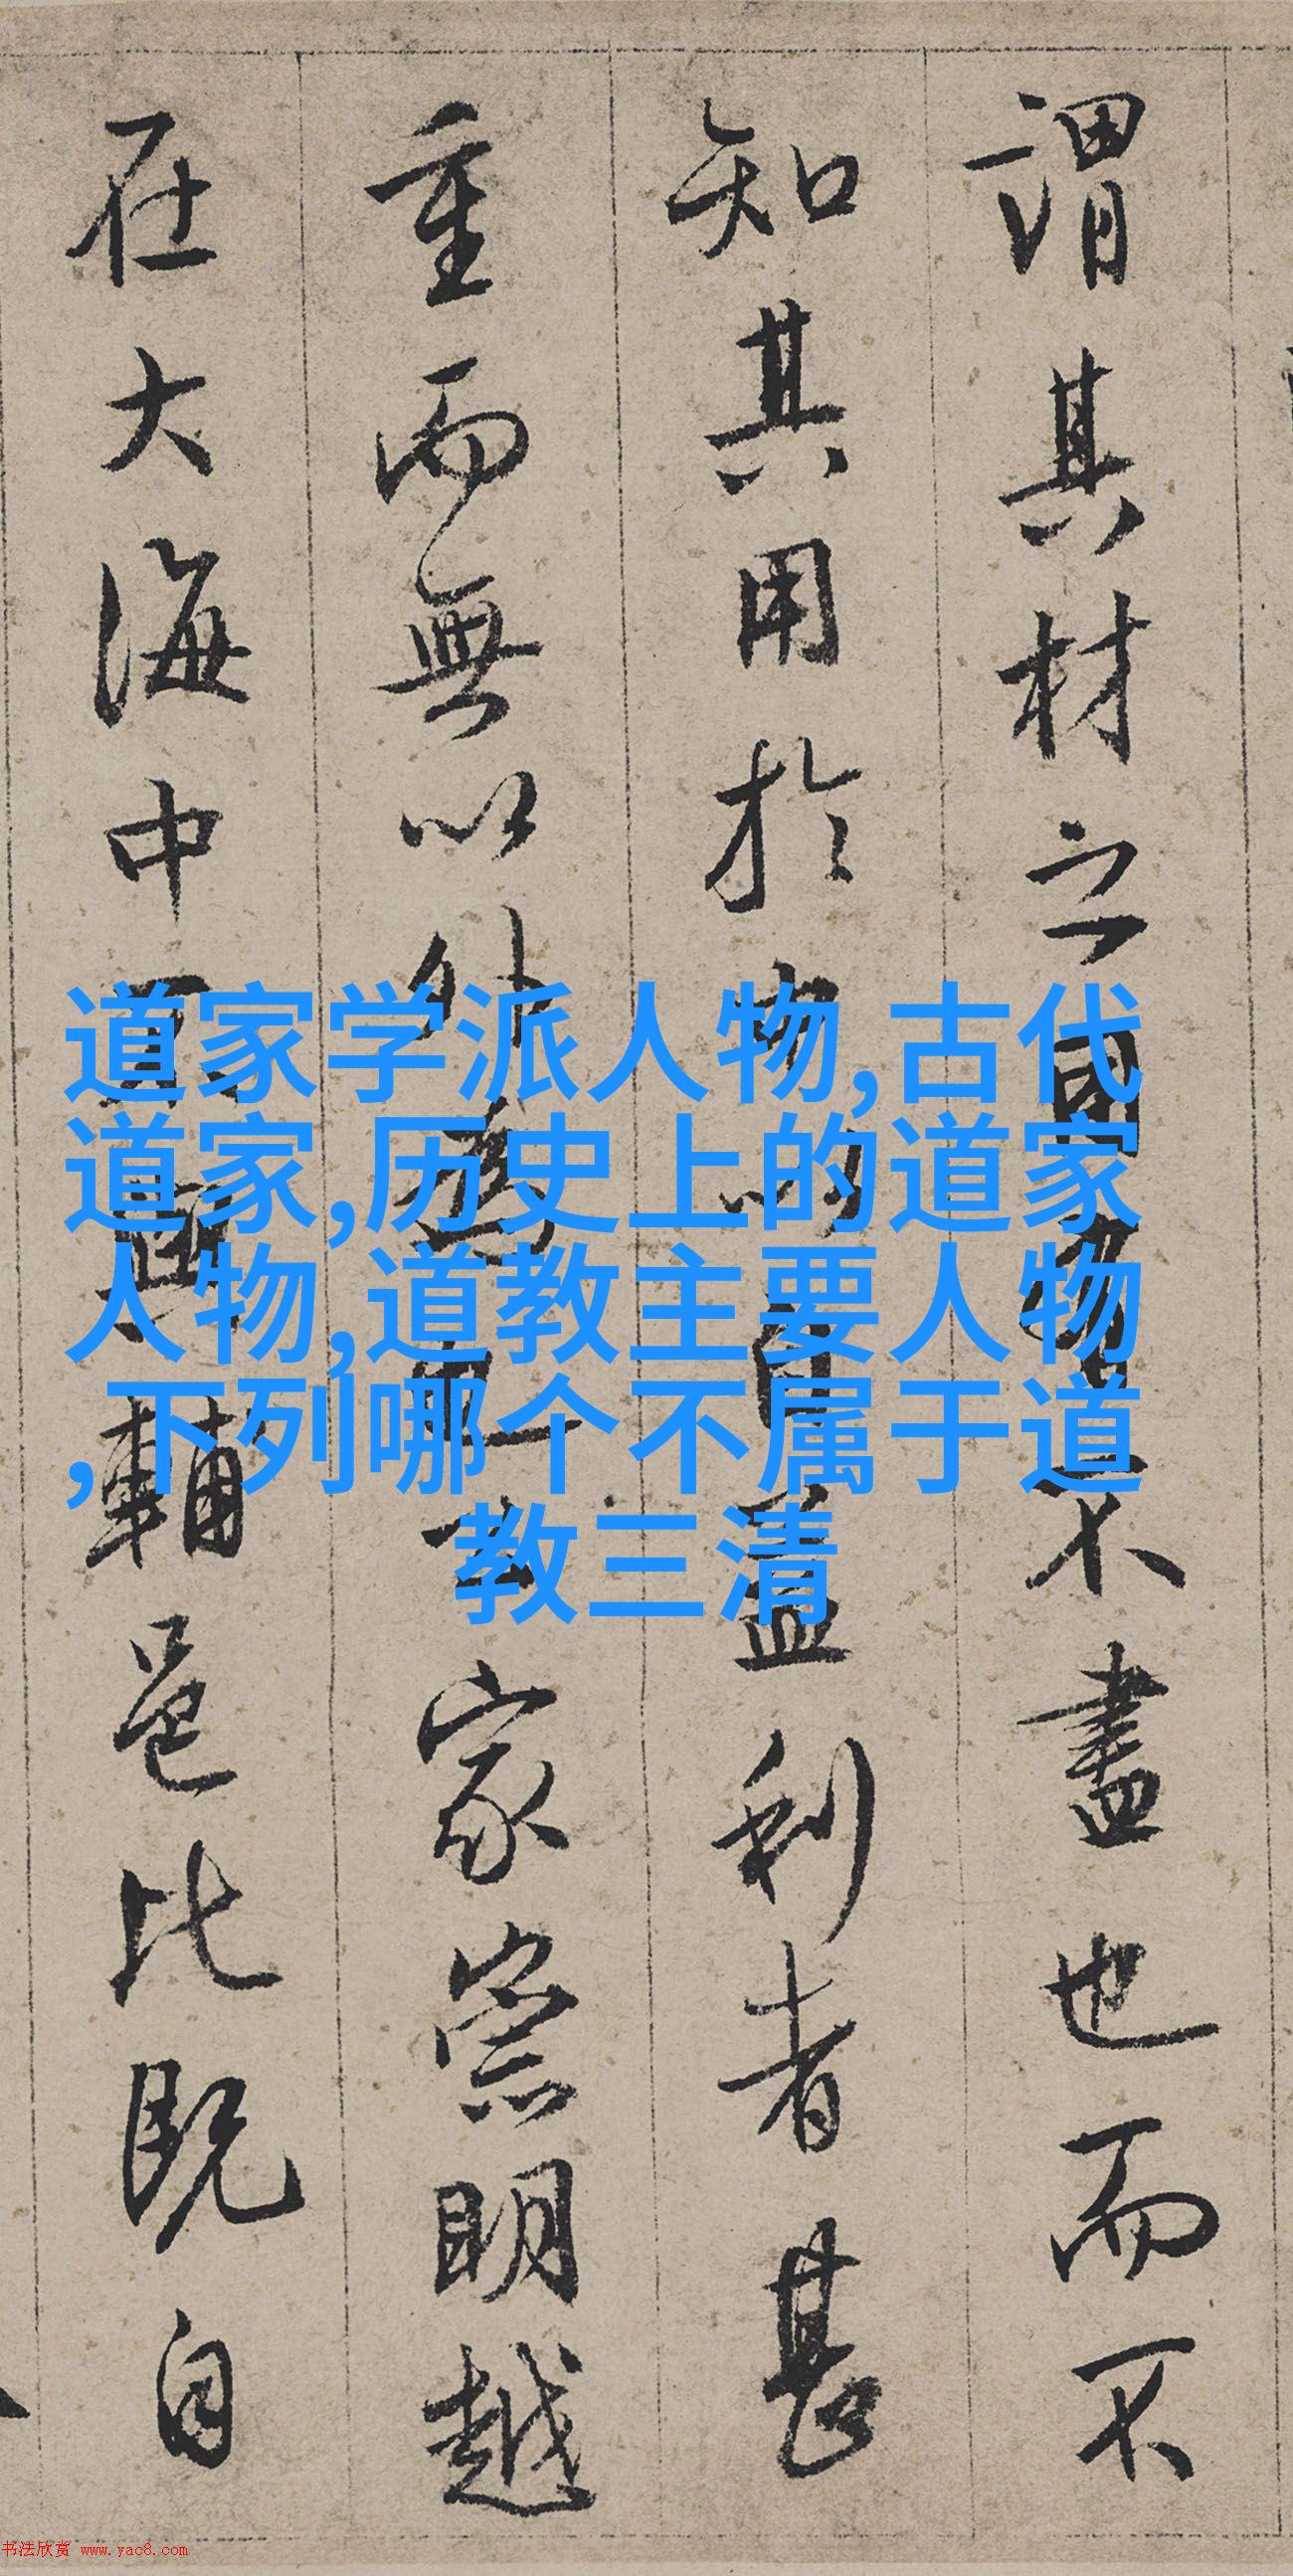 謂其材之國為不盡也而不
知其用於以自益利者甚
重而無以外為家崇明越
在大海中輔邑比既自
道家学派人物,古代
道家,历史上的道家
人物,道教主要人物
,下列哪个不属于道
教三清
书法欣赏 www.yac8.com